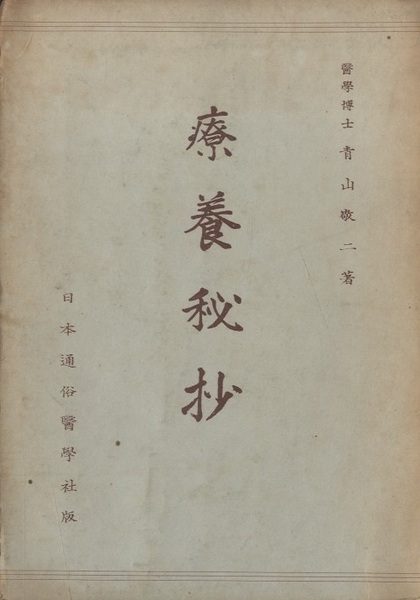 醫學博士 青山敬二著
療養秘抄
日本通俗醫學社版